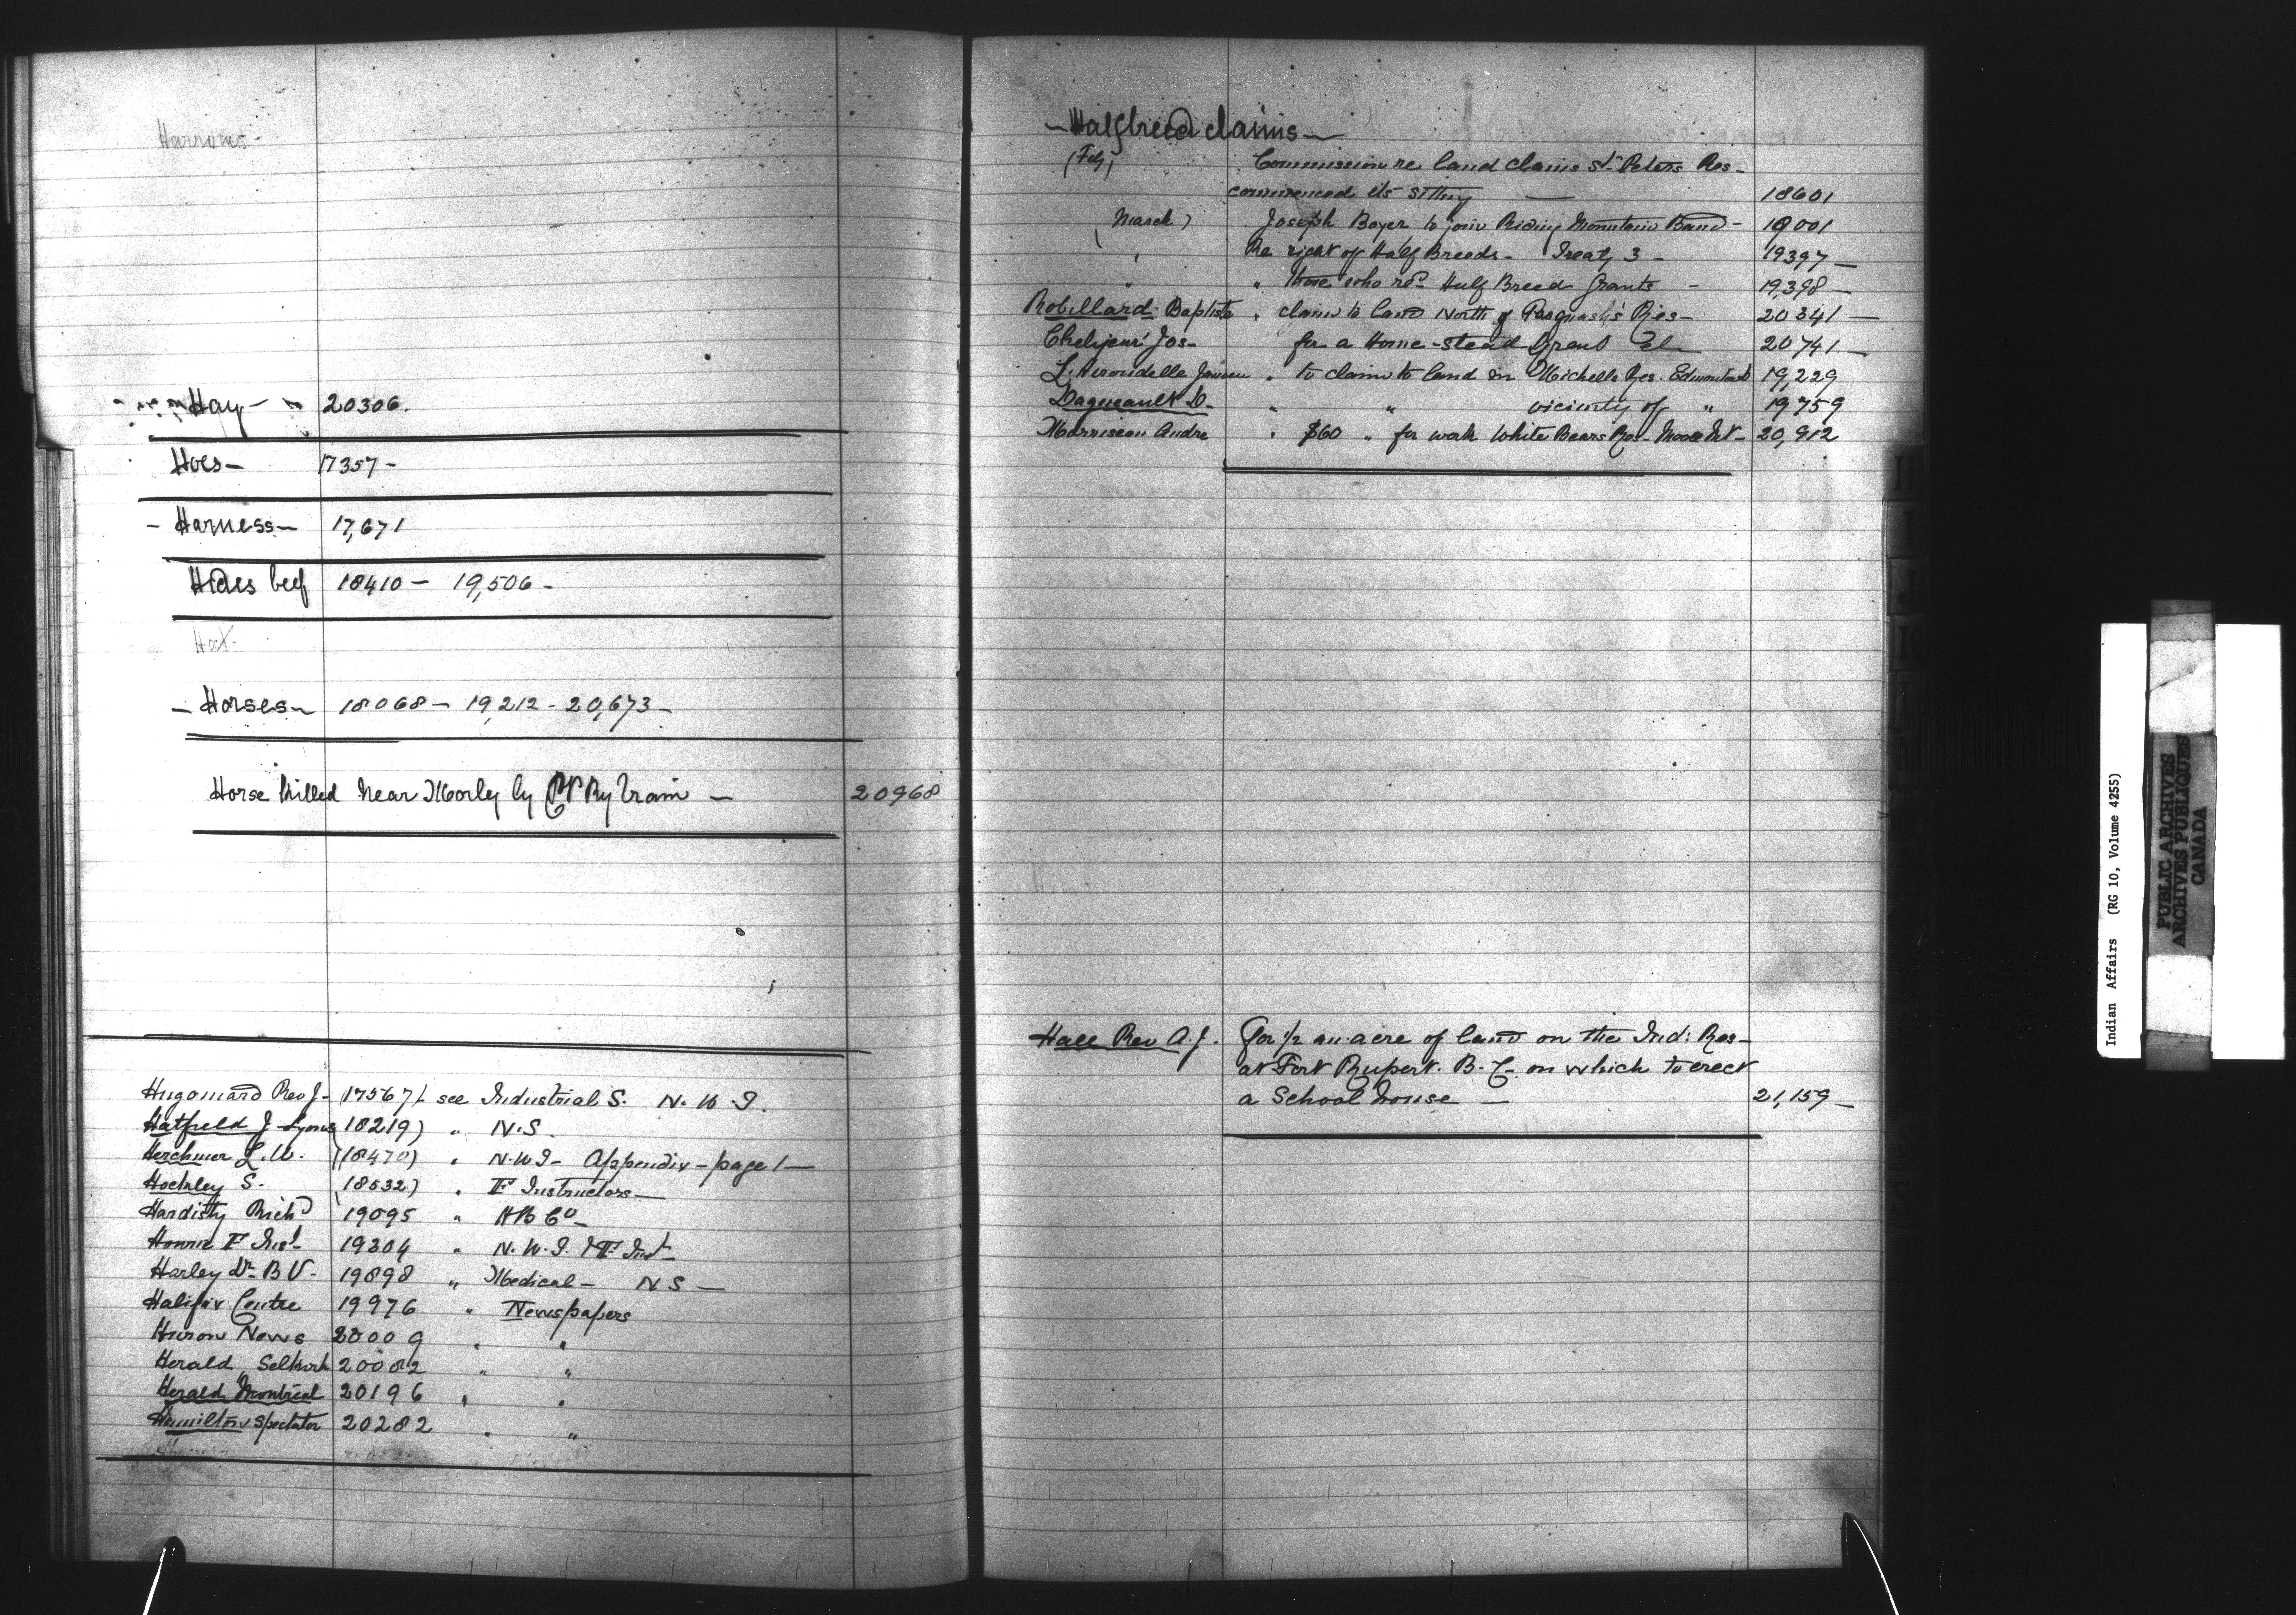 Harrows -
Hay - 20306.
Hoes - 17357 -
- Harness - 17,671
Hides beef 18410 - 19,506 -
- Horses - 18068 - 19,212 - 20,673 -
Horse killed near Morley by CP Ry train - 20968
Hugonard Rev J - (17567) - see Industrial S. N. W. T.
Hatfield J Lyons (18219) " N. S.
Herchmer L. W. (18470) " N. W. T - Appendix - page 1 -
Hockley S. (18532) " F Instructors -
Hardisty Richd 19095 " HB Co -
Hourie F Inst 19304 " N. W. T. F Inst -
Harley Dr B V - 19898 " Medical - N S -
Halifax Centre 19976 " Newspapers
Huron News 20009 " "
Herald Selkirk 20082 " "
Herald Montreal 20196 " "
Hamilton Spectator 20282 " "
- Halfbreed claims -
(Feby) Commission re land claims St. Peters Res -
commenced its sitting - 18601
(March) Joseph Boyer to join Riding Mountain Band - 19001
" Re right of Half Breeds - Treaty 3 - 19397 -
" " those who recd Half Breed Grants - 19,398 -
Robillard Baptiste " claim to land North of Pasquah's Res - 20341 -
Jos - for a Home-stead Grant 20741 -
L'Hirondelle " to claim to land in Michells Res. Edmonton 19,229
Dagneault D - " " vicinity of " 19759
Morrisseau Andre " $60 " for work White Bears Res - Moose Mt - 20,912
Hall Rev A. J. For 1/2 an acre of land on the Ind: Res -
at Fort Rupert. B. C. on which to erect
a School house - 21,159 -
Indian Affairs (RG 10, Volume 4255)
PUBLIC ARCHIVES
ARCHIVES PUBLIQUES
CANADA